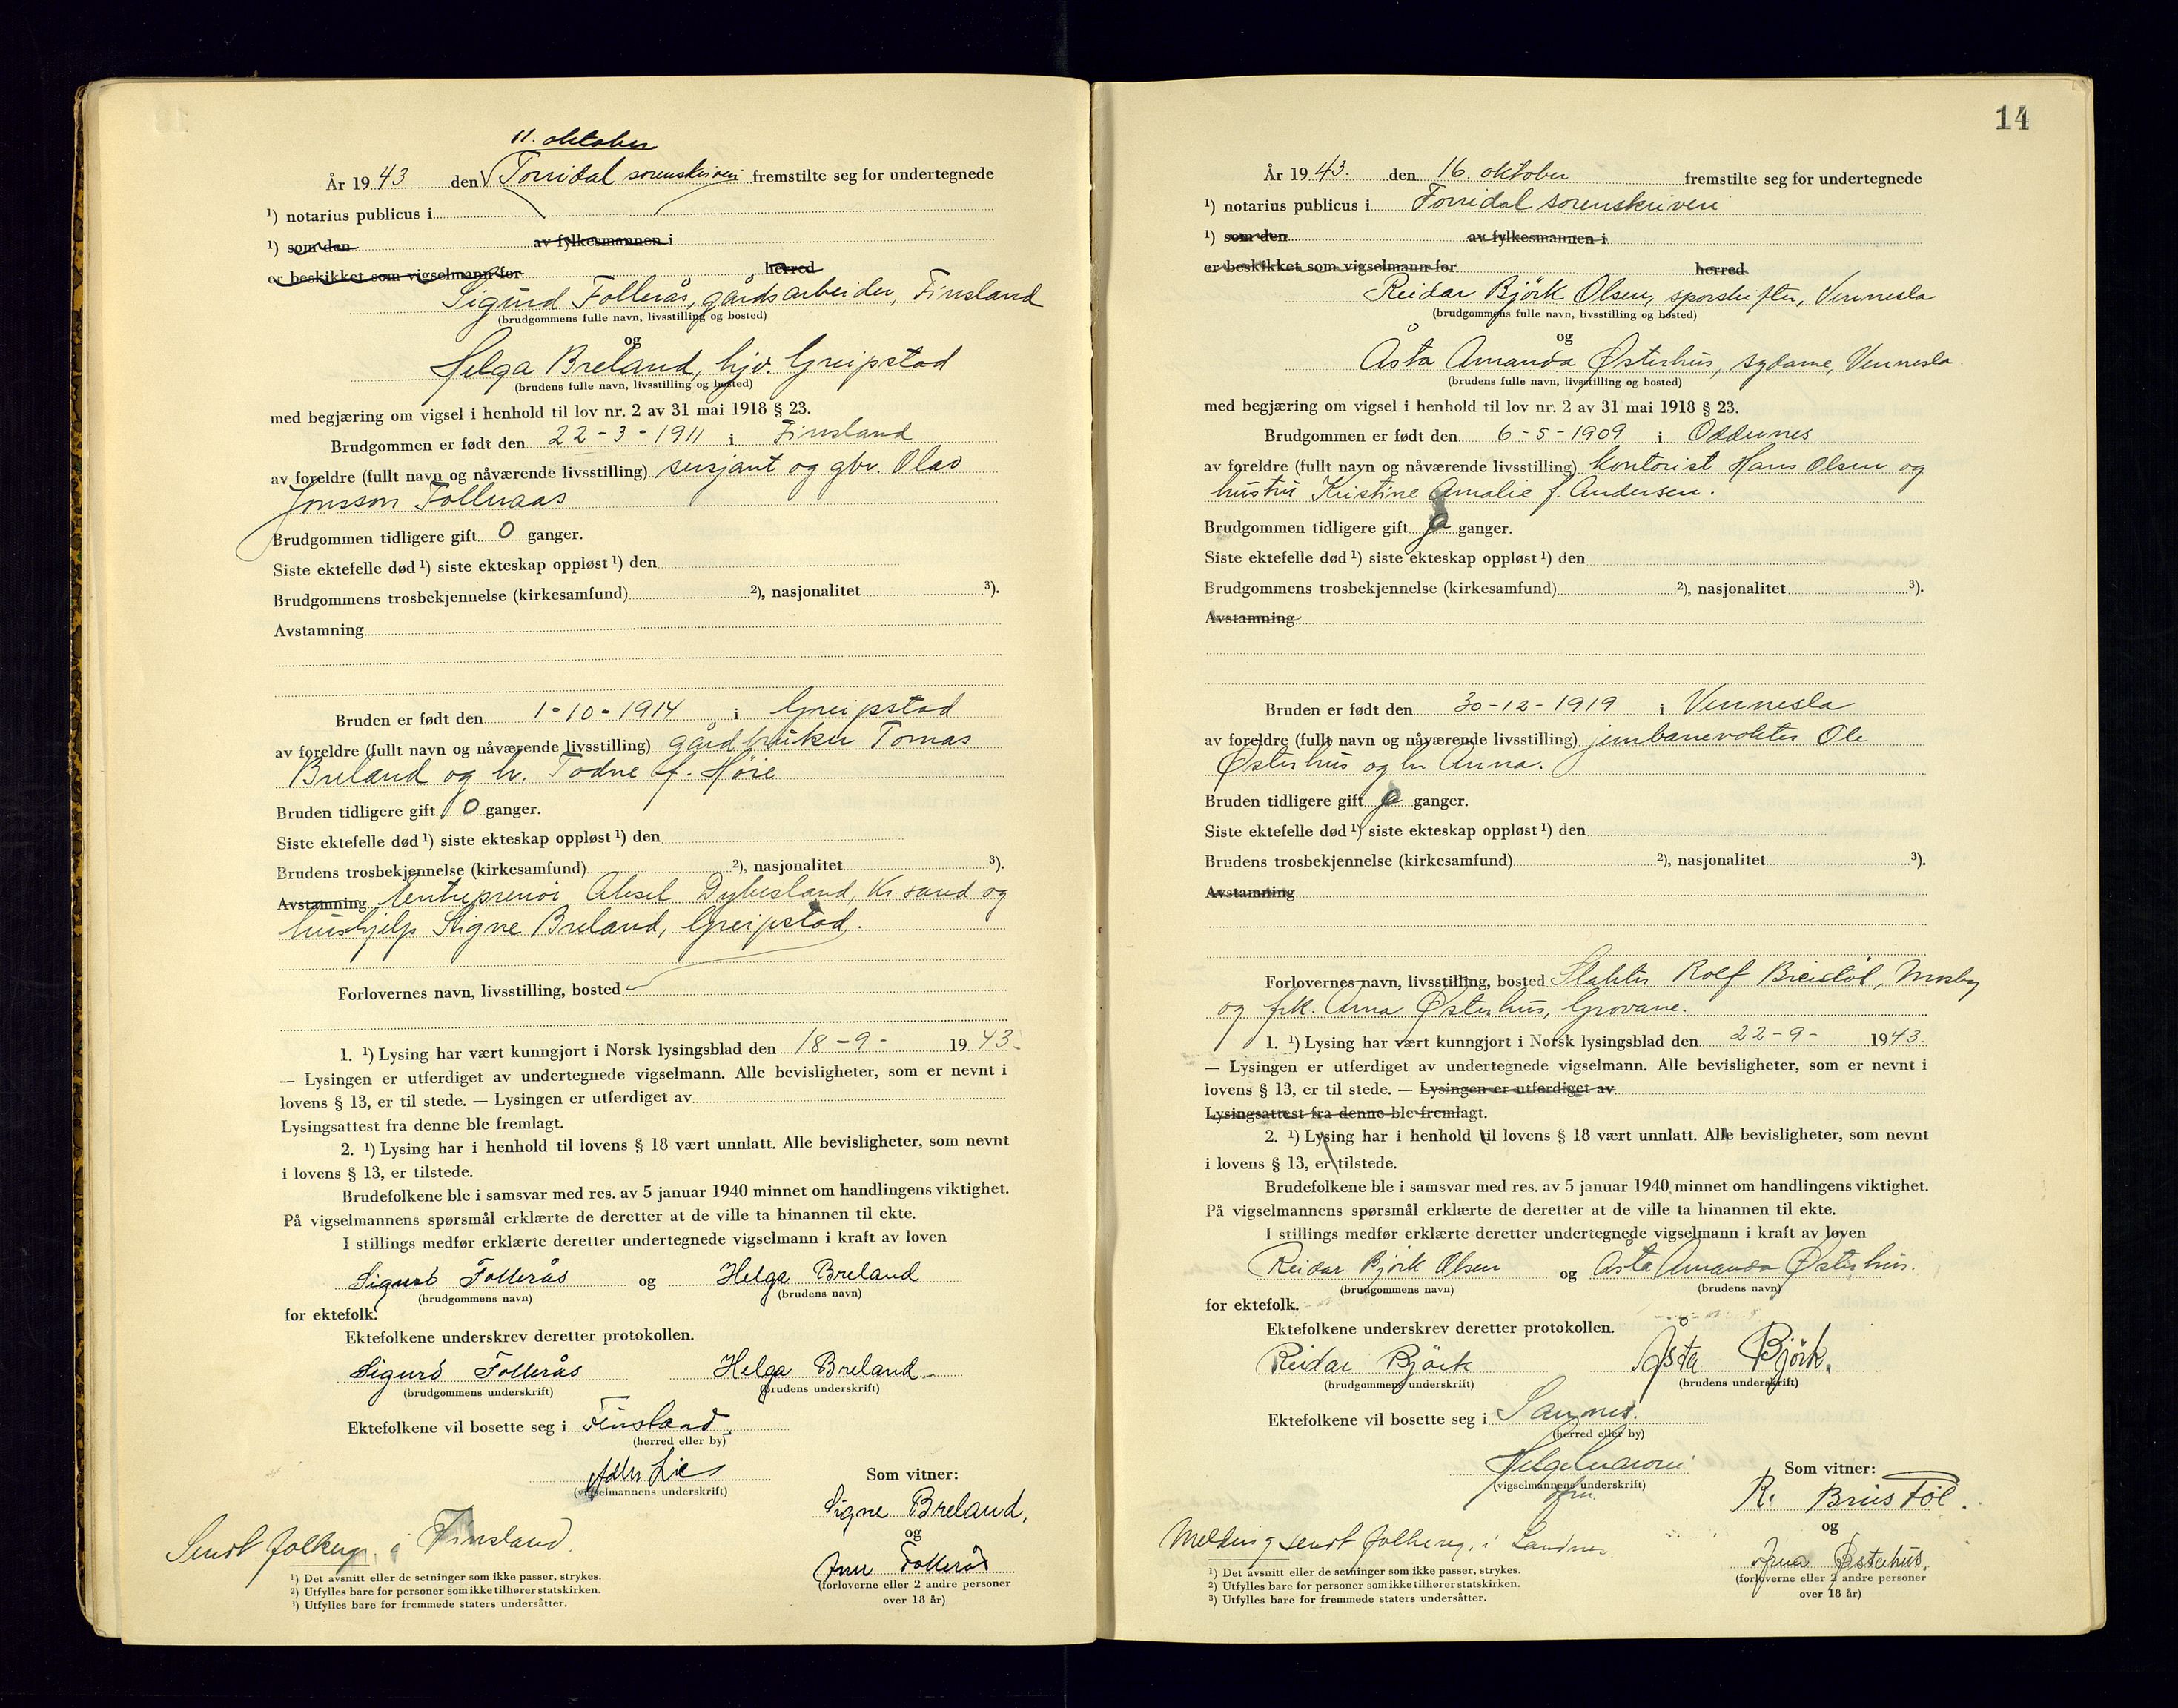 11. oktober
År 1943 den Torridal sorenskriveri fremstilte seg for undertegnede
¹) notarius publicus i
¹) som den av fylkesmannen i
er beskikket som vigselmann for herred
Sigurd Follerås, gårdsarbeider, Finsland
(brudgommens fulle navn, livsstilling og bosted)
og
Helga Breland, hjv. Greipstad
(brudens fulle navn, livsstilling og bosted)
med begjæring om vigsel i henhold til lov nr. 2 av 31 mai 1918 § 23.
Brudgommen er født den 22-3-1911 i Finsland
av foreldre (fullt navn og nåværende livsstilling) sersjant og gbr. Olav
Jonsson Folleraas
Brudgommen tidligere gift 0 ganger.
Siste ektefelle død ¹) siste ekteskap oppløst ¹) den
Brudgommens trosbekjennelse (kirkesamfund) ²), nasjonalitet ³).
Avstamning
Bruden er født den 1-10-1914 i Greipstad
av foreldre (fullt navn og nåværende livsstilling) gårdbruker Tomas
Breland og h. Todne f. Høie
Bruden tidligere gift 0 ganger.
Siste ektefelle død ¹) siste ekteskap oppløst ¹) den
Brudens trosbekjennelse (kirkesamfund) ²), nasjonalitet ³).
Avstamning Entreprenør Aksel Dybesland, Kr.sand og
hushjelp Signe Breland, Greipstad.
Forlovernes navn, livsstilling, bosted
1. ¹) Lysing har vært kunngjort i Norsk lysingsblad den 18-9- 1943.
— Lysingen er utferdiget av undertegnede vigselmann. Alle bevisligheter, som er nevnt i
lovens § 13, er til stede. — Lysingen er utferdiget av
Lysingsattest fra denne ble fremlagt.
2. ¹) Lysing har i henhold til lovens § 18 vært unnlatt. Alle bevisligheter, som nevnt
i lovens § 13, er tilstede.
Brudefolkene ble i samsvar med res. av 5 januar 1940 minnet om handlingens viktighet.
På vigselmannens spørsmål erklærte de deretter at de ville ta hinannen til ekte.
I stillings medfør erklærte deretter undertegnede vigselmann i kraft av loven
Sigurd Follerås og Helga Breland
(brudgommens navn) (brudens navn)
for ektefolk.
Ektefolkene underskrev deretter protokollen.
Sigurd Follerås Helga Breland
(brudgommens underskrift) (brudens underskrift)
Ektefolkene vil bosette seg i Finsland
(herred eller by)
Lie
(vigselmannens underskrift)
Som vitner:
Signe Breland,
og
Follerås
(forloverne eller 2 andre personer
over 18 år)
Sendt folkereg. i Finsland.
¹) Det avsnitt eller de setninger som ikke passer, strykes.
²) Utfylles bare for personer som ikke tilhører statskirken.
³) Utfylles bare for fremmede staters undersåtter.
14
År 1943. den 16. oktober fremstilte seg for undertegnede
¹) notarius publicus i Torridal sorenskriveri
¹) som den av fylkesmannen i
er beskikket som vigselmann for herred
Reidar Björk Olsen, sporskifter, Vennesla
(brudgommens fulle navn, livsstilling og bosted)
og
Åsta Amanda Østerhus, sydame, Vennesla.
(brudens fulle navn, livsstilling og bosted)
med begjæring om vigsel i henhold til lov nr. 2 av 31 mai 1918 § 23.
Brudgommen er født den 6-5-1909 i Oddernes
av foreldre (fullt navn og nåværende livsstilling) kontorist Hans Olsen og
hustru Kristine Amalie f. Andersen.
Brudgommen tidligere gift 0 ganger.
Siste ektefelle død ¹) siste ekteskap oppløst ¹) den
Brudgommens trosbekjennelse (kirkesamfund) ²), nasjonalitet ³).
Avstamning
Bruden er født den 30-12-1919 i Vennesla
av foreldre (fullt navn og nåværende livsstilling) jernbanevokter Ole
Østerhus og h. Anna.
Bruden tidligere gift 0 ganger.
Siste ektefelle død ¹) siste ekteskap oppløst ¹) den
Brudens trosbekjennelse (kirkesamfund) ²), nasjonalitet ³).
Avstamning
Forlovernes navn, livsstilling, bosted Slakter Rolf Breistöl, Mosby
og frk. Arna Østerhus, Grovane.
1. ¹) Lysing har vært kunngjort i Norsk lysingsblad den 22-9- 1943.
— Lysingen er utferdiget av undertegnede vigselmann. Alle bevisligheter, som er nevnt i
lovens § 13, er til stede. — Lysingen er utferdiget av
Lysingsattest fra denne ble fremlagt.
2. ¹) Lysing har i henhold til lovens § 18 vært unnlatt. Alle bevisligheter, som nevnt
i lovens § 13, er tilstede.
Brudefolkene ble i samsvar med res. av 5 januar 1940 minnet om handlingens viktighet.
På vigselmannens spørsmål erklærte de deretter at de ville ta hinannen til ekte.
I stillings medfør erklærte deretter undertegnede vigselmann i kraft av loven
Reidar Björk Olsen og Åsta Amanda Østerhus.
(brudgommens navn) (brudens navn)
for ektefolk.
Ektefolkene underskrev deretter protokollen.
Reidar Björk Åsta Björk.
(brudgommens underskrift) (brudens underskrift)
Ektefolkene vil bosette seg i
(herred eller by)
(vigselmannens underskrift)
Som vitner:
R. Breistöl.
og
Arna Østerhus.
(forloverne eller 2 andre personer
over 18 år)
Melding sendt folkereg. i
¹) Det avsnitt eller de setninger som ikke passer, strykes.
²) Utfylles bare for personer som ikke tilhører statskirken.
³) Utfylles bare for fremmede staters undersåtter.